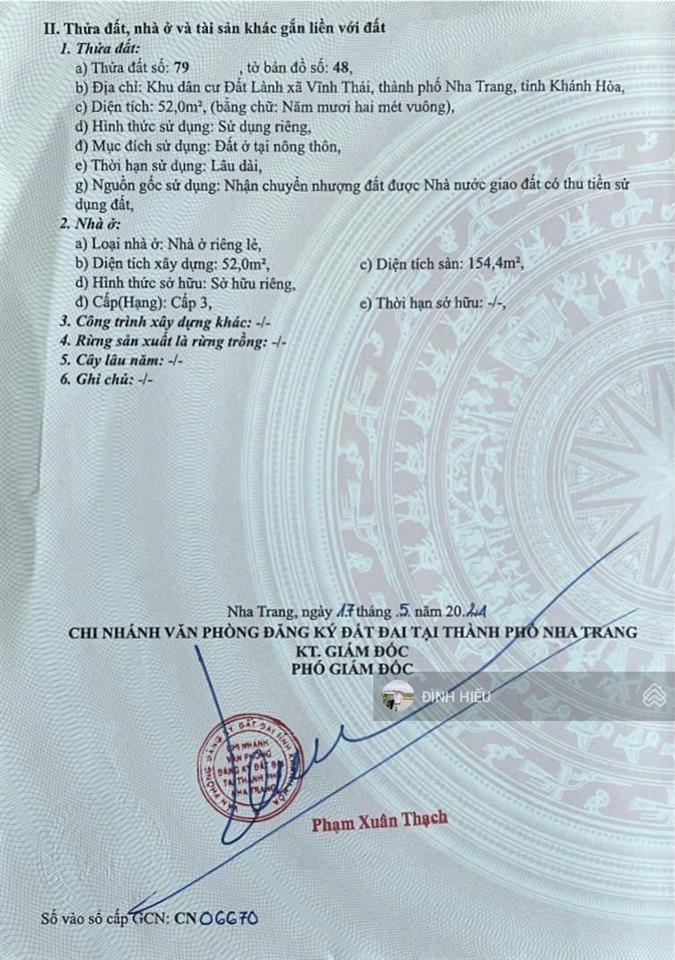 II. Thửa đất, nhà ở và tài sản khác gắn liền với đất
1. Thửa đất:
a) Thửa đất số: 79 , tờ bản đồ số: 48,
b) Địa chỉ: Khu dân cư Đất Lành xã Vĩnh Thái, thành phố Nha Trang, tỉnh Khánh Hòa,
c) Diện tích: 52,0m², (bằng chữ: Năm mươi hai mét vuông),
d) Hình thức sử dụng: Sử dụng riêng,
đ) Mục đích sử dụng: Đất ở tại nông thôn,
e) Thời hạn sử dụng: Lâu dài,
g) Nguồn gốc sử dụng: Nhận chuyển nhượng đất được Nhà nước giao đất có thu tiền sử
dụng đất,
2. Nhà ở:
a) Loại nhà ở: Nhà ở riêng lẻ,
b) Diện tích xây dựng: 52,0m², c) Diện tích sàn: 154,4m²,
d) Hình thức sở hữu: Sở hữu riêng,
đ) Cấp(Hạng): Cấp 3, e) Thời hạn sở hữu: -/-,
3. Công trình xây dựng khác: -/-
4. Rừng sản xuất là rừng trồng: -/-
5. Cây lâu năm: -/-
6. Ghi chú: -/-
Nha Trang, ngày 17 tháng .5. năm 2021
CHI NHÁNH VĂN PHÒNG ĐĂNG KÝ ĐẤT ĐAI TẠI THÀNH PHỐ NHA TRANG
KT. GIÁM ĐỐC
PHÓ GIÁM ĐỐC
ĐÌNH HIẾU
VĂN PHÒNG ĐĂNG KÝ ĐẤT ĐAI TỈNH KHÁNH HÒA
CHI NHÁNH
VĂN PHÒNG
ĐĂNG KÝ ĐẤT ĐAI
TẠI THÀNH PHỐ
NHA TRANG
Phạm Xuân Thạch
Số vào sổ cấp GCN: CN 06670